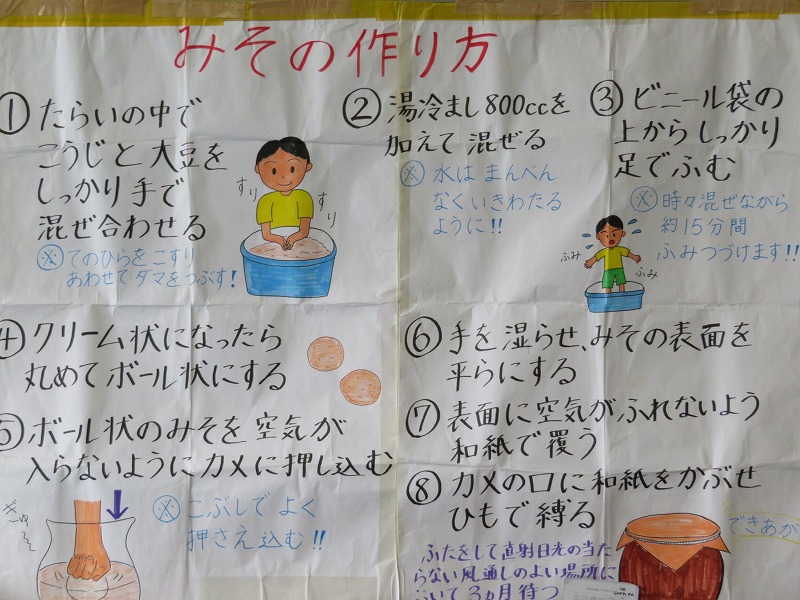 みその作り方
① たらいの中で
こうじと大豆を
しっかり手で
混ぜ合わせる
※ てのひらをこすり
あわせてダマをつぶす！
すり
すり
② 湯冷まし800ccを
加えて混ぜる
※ 水はまんべん
なくいきわたる
ように！！
③ ビニール袋の
上からしっかり
足でふむ
※ 時々混ぜながら
約15分間
ふみつづけます！！
ふみ
ふみ
④ クリーム状になったら
丸めてボール状にする
⑤ ボール状のみそを空気が
入らないようにカメに押し込む
※ こぶしでよく
押さえ込む！！
⑥ 手を湿らせ、みその表面を
平らにする
⑦ 表面に空気がふれないよう
和紙で覆う
⑧ カメの口に和紙をかぶせ
ひもで縛る
ふたをして直射日光の当た
らない風通しのよい場所に
おいて3ヵ月待つ
できあが